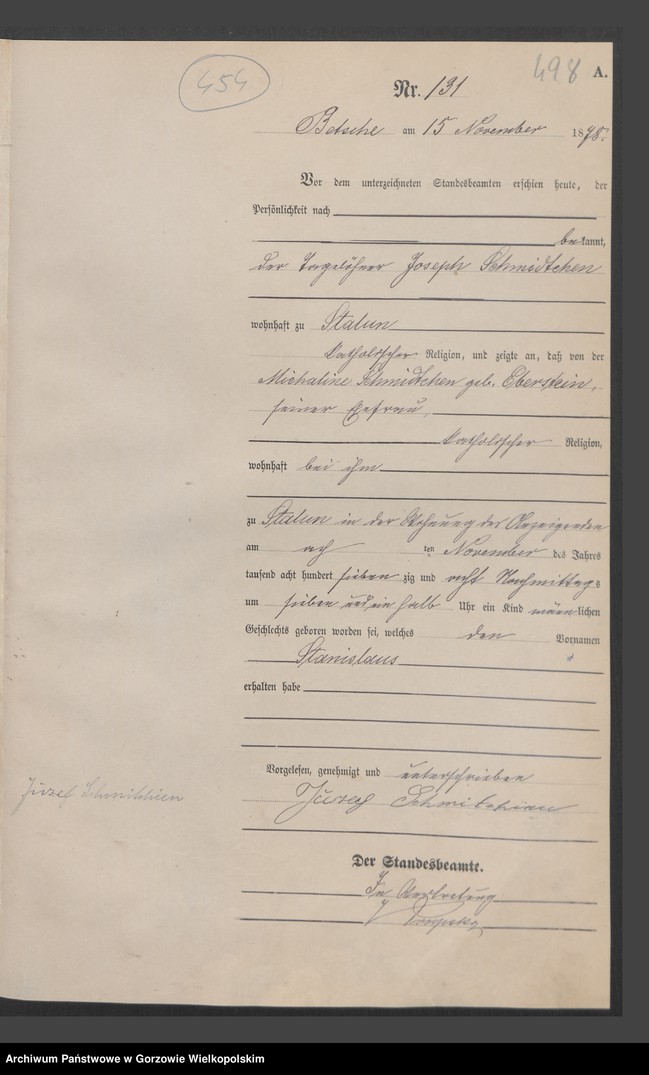 454
498 A.
Nr. 131
Betsche am 15 November 1878.
Vor dem unterzeichneten Standesbeamten erschien heute, der
Persönlichkeit nach
bekannt,
der Tagelöhner Joseph Schmidtchen
wohnhaft zu Stalun
katholischer Religion, und zeigte an, daß von der
Michaline Schmidtchen geb. Eberstein,
seiner Ehefrau,
katholischer Religion,
wohnhaft bei ihm
zu Stalun in der Wohnung des Anzeigenden
am ach ten November des Jahres
tausend acht hundert sieben zig und acht Nachmittags
um sieben und ein halb Uhr ein Kind männlichen
Geschlechts geboren worden sei, welches den Vornamen
Stanislaus
erhalten habe
Vorgelesen, genehmigt und unterschrieben
Józef
Józef
Der Standesbeamte.
In Vertretung
Archiwum Państwowe w Gorzowie Wielkopolskim